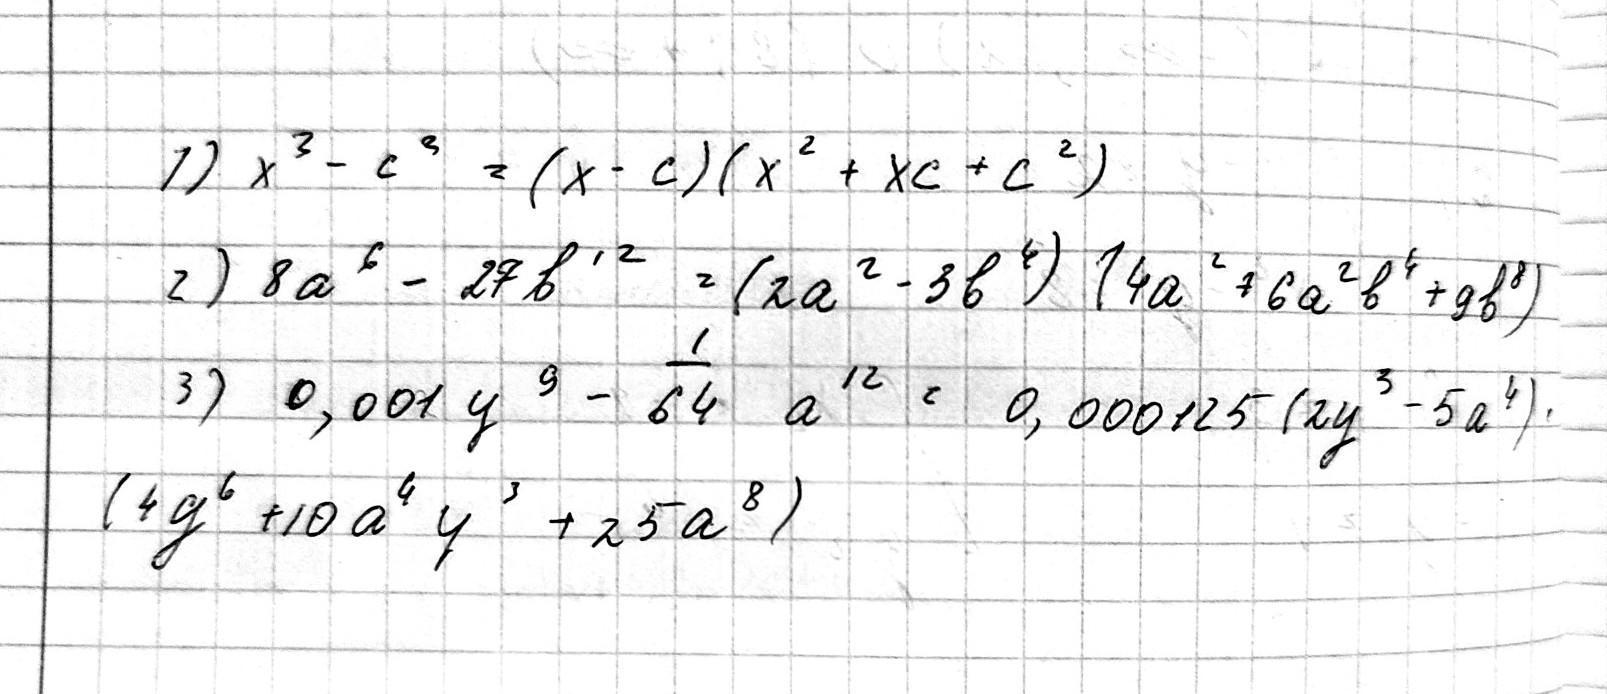 1) x³ - c³ = (x - c)(x² + xc + c²)
2) 8a⁶ - 27b¹² = (2a² - 3b⁴) (4a² + 6a²b⁴ + 9b⁸)
3) 0,001y⁹ - 1/64 a¹² = 0,000125 (2y³ - 5a⁴) ·
(4y⁶ + 10a⁴y³ + 25a⁸)